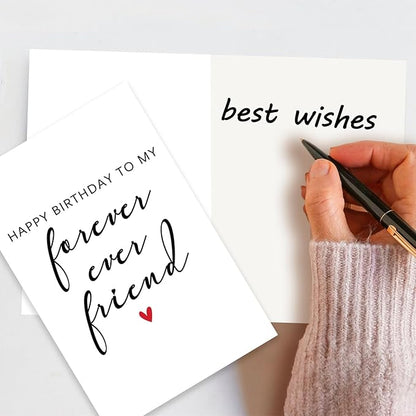 HAPPY BIRTHDAY TO MY
forever
ever
friend
best wishes